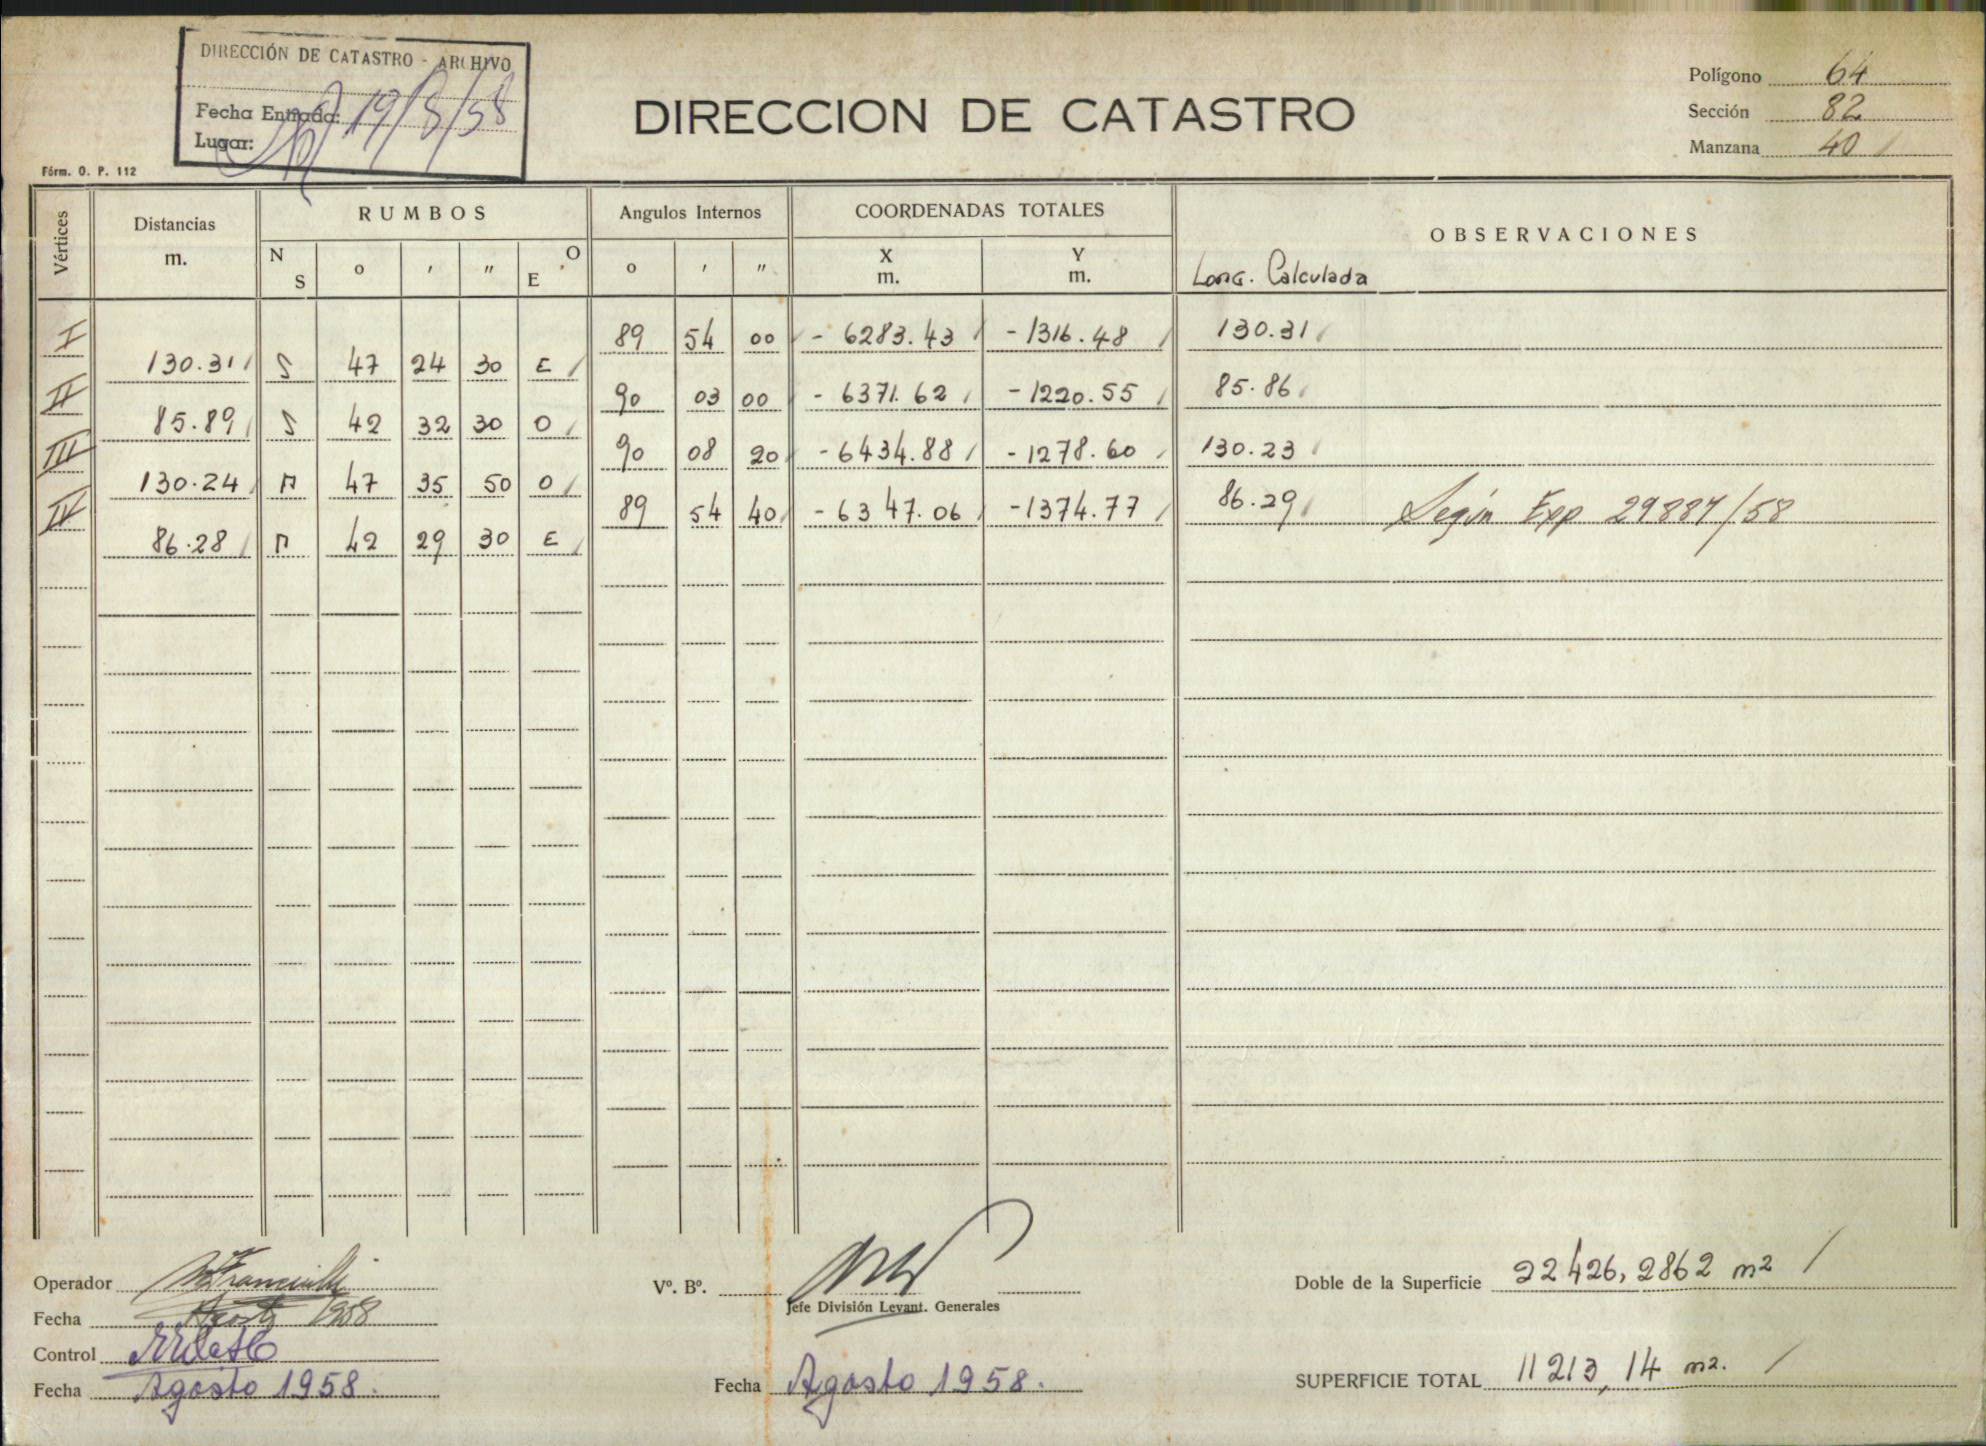 DIRECCIÓN DE CATASTRO - ARCHIVO
Fecha Entrada: 19/8/58
Lugar:
Fórm. O. P. 112
DIRECCION DE CATASTRO
Polígono 64
Sección 82
Manzana 40
Vértices Distancias m. RUMBOS Angulos Internos COORDENADAS TOTALES OBSERVACIONES
N S o ' " E O o ' " X m. Y m. Long. Calculada
I 89 54 00 - 6283.43 - 1316.48 130.31
130.31 S 47 24 30 E
II 90 03 00 - 6371.62 - 1220.55 85.86
85.89 S 42 32 30 O
III 90 08 20 - 6434.88 - 1278.60 130.23
130.24 N 47 35 50 O
IV 89 54 40 - 6347.06 - 1374.77 86.29 Según Exp 29887/58
86.28 N 42 29 30 E
Operador
Fecha Agosto 1958
Control
Fecha Agosto 1958.
Vº. Bº.
Jefe División Levant. Generales
Fecha Agosto 1958.
Doble de la Superficie 22426,2862 m2
SUPERFICIE TOTAL 11213,14 m2.